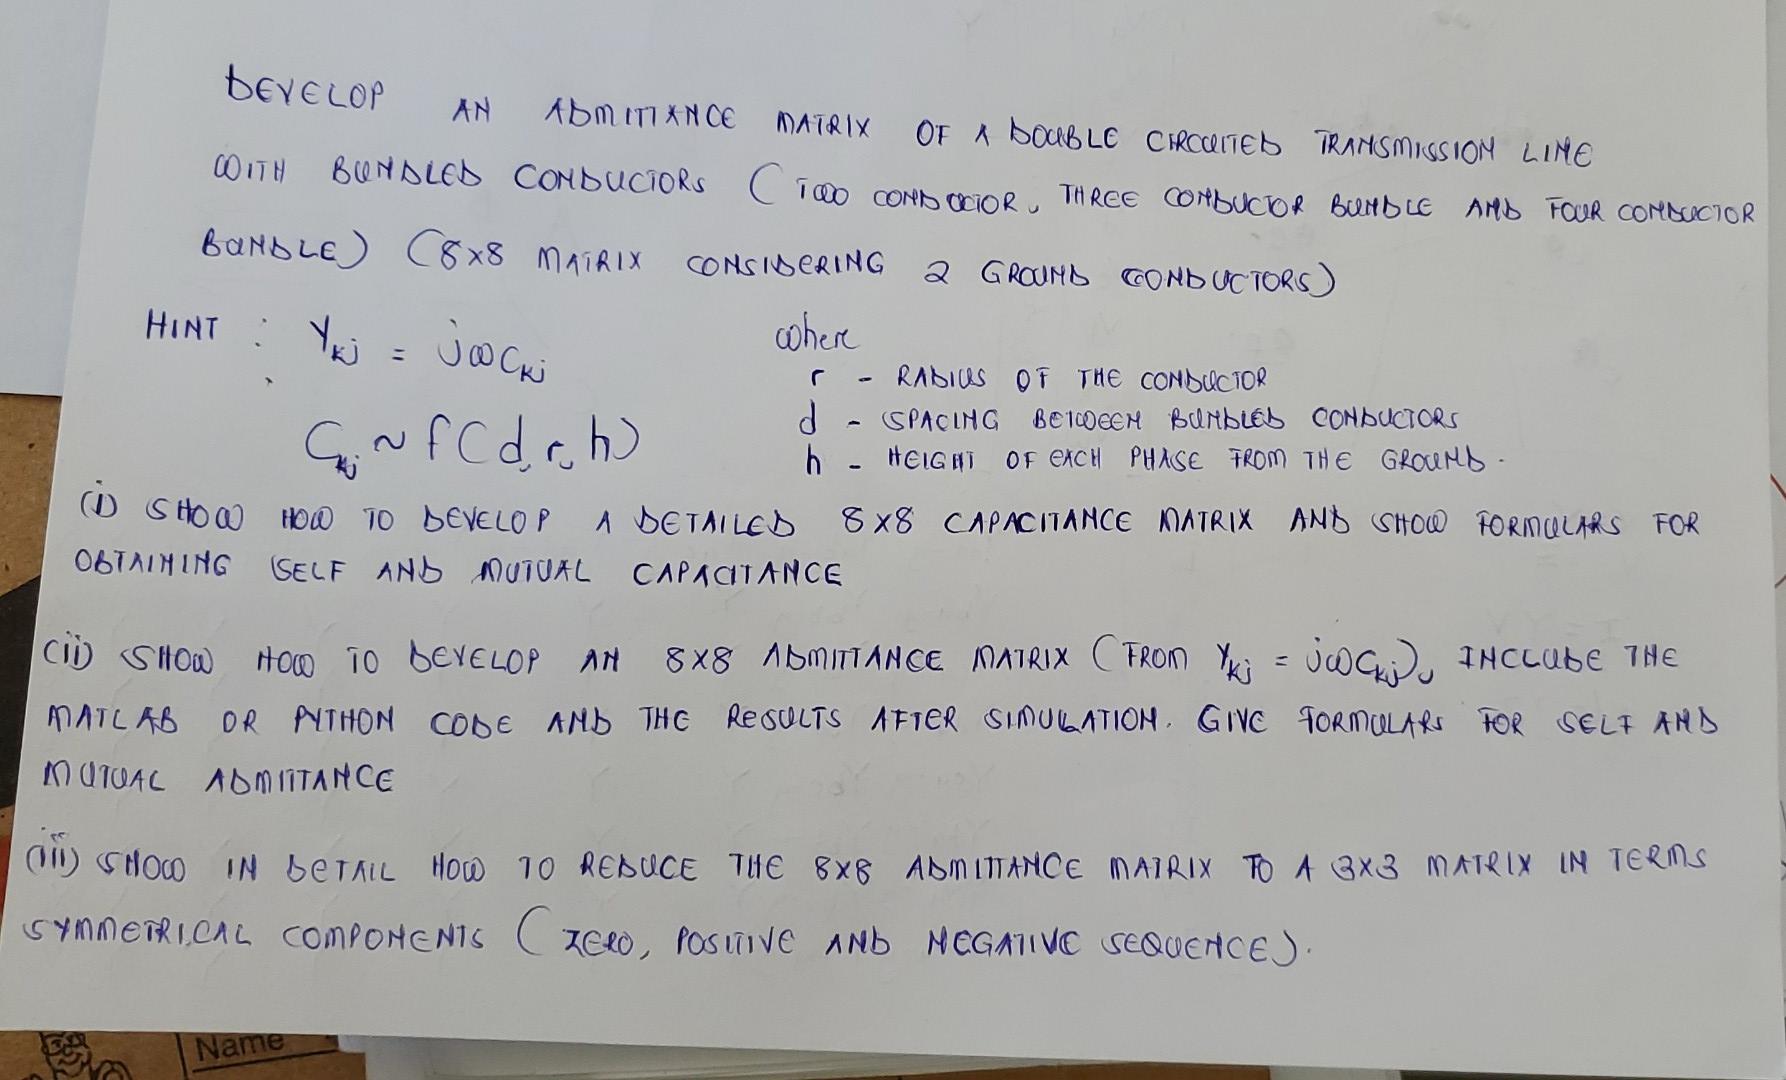 DEVELOP AN ADMITTANCE MATRIX OF A DOUBLE CIRCUITED TRANSMISSION LINE
WITH BUNDLED CONDUCTORS (TWO CONDUCTOR, THREE CONDUCTOR BUNDLE AND FOUR CONDUCTOR
BUNDLE) (8x8 MATRIX CONSIDERING 2 GROUND CONDUCTORS)
HINT : Ykj = jωCkj where
r - RADIUS OF THE CONDUCTOR
Ckj ~ f(d, r, h) d - SPACING BETWEEN BUNDLED CONDUCTORS
h - HEIGHT OF EACH PHASE FROM THE GROUND.
(i) SHOW HOW TO DEVELOP A DETAILED 8x8 CAPACITANCE MATRIX AND SHOW FORMULARS FOR
OBTAINING SELF AND MUTUAL CAPACITANCE
(ii) SHOW HOW TO DEVELOP AN 8x8 ADMITTANCE MATRIX (FROM Ykj = jωCkj), INCLUDE THE
MATLAB OR PYTHON CODE AND THE RESULTS AFTER SIMULATION. GIVE FORMULARS FOR SELF AND
MUTUAL ADMITTANCE
(iii) SHOW IN DETAIL HOW TO REDUCE THE 8x8 ADMITTANCE MATRIX TO A 3x3 MATRIX IN TERMS
SYMMETRICAL COMPONENTS (ZERO, POSITIVE AND NEGATIVE SEQUENCE).
Name